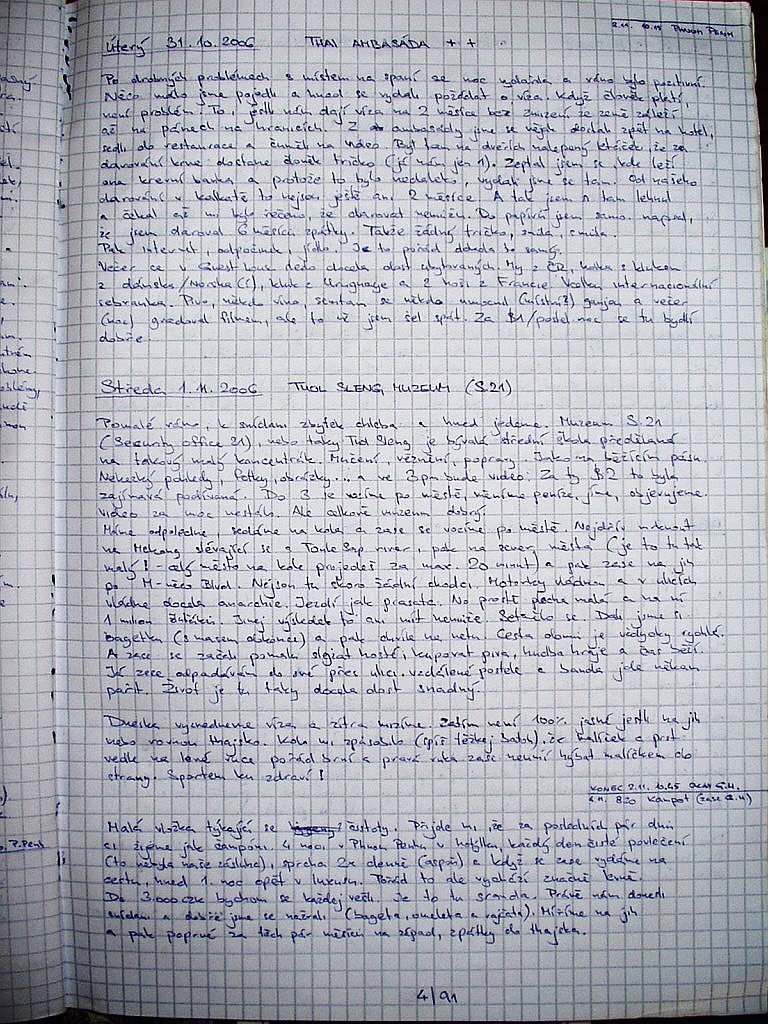 2.11. 10.15 PHNOM PENH
Úterý 31.10.2006 THAI AMBASÁDA ++
Po drobných problémech s místem na spaní se noc vydařila a ráno bylo pozitivní.
Něco málo jsme pojedli a hned se vydali požádat o víza. Když člověk platí,
není problém. To, jestli nám dají víza na 2 měsíce bez zmizení ze země záleží
až na pánech na hranicích. Z ambasády jsme se vrátili zpět na hotel,
sedli do restaurace a čuměli na video. Byl tam na dveřích nalepený letáček, že za
darování krve dostane člověk tričko (já mám jen 1). Zeptal jsem se kde leží
ona krevní banka a protože to bylo nedaleko, vydali jsme se tam. Od našeho
darování v Kalkatě to nejsou ještě ani 2 měsíce. A tak jsem si tam lehnul
a čekal až mi bylo řečeno, že darovat nemůžu. Do papírů jsem samo napsal,
že jsem daroval 6 měsíců zpátky. Takže žádný tričko, soda,
Pak internet, odpočinek, jídlo. Je to pořád dokola to samý.
Večer se v Guest House dělo docela dost My z ČR, holka s klukem
z dánska/Norska (?), kluk z Uruguaye a 2 hoši z Francie. Velká internacionální
sebranka. Pivo, někdo víno, se někdo ganjou a večer
(noc) gradoval filmem, ale to už jsem šel spát. Za $1/postel noc se tu bydlí
dobře.
Středa 1.11.2006 TUOL SLENG MUZEUM (S.21)
Pomalé ráno, k snídani zbytek chleba a hned jedeme. Muzeum S.21
(Security office 21), nebo taky Tuol Sleng je bývalá střední škola předělaná
na takový malý koncentrák. Mučení, věznění, popravy. Jako na běžícím pásu.
Nehezký pohledy, fotky, obrázky... a ve 3pm bude video. Za ty $2 to byla
zajímavá podívaná. Do 3 je vozíme po městě, měníme peníze, jíme, objevujeme.
Video za moc nestálo. Ale celkově muzeum dobrý.
Máme odpoledne, sedáme na kola a zase se vozíme po městě. Nejdřív mrknout
na Mekong slévající se s Tonle Sap river, pak na sever města (je to tu tak
malý! - celý město na kole projedeš za max. 20 minut) a pak zase na jih
po M-něco Blvd. Nejsou tu skoro žádní chodci. Motorky vládnou a v ulicích
vládne docela anarchie. Jezdí jak prasata. No prostě plocha malá a na ní
1 milion Jinej výsledek to ani mít nemůže. Setmělo se. Dali jsme si
bagetku (s masem dokonce) a pak chvíle na netu. Cesta domů je vždycky rychlá.
A zase se začali pomalu slejzat hosté, kupovat piva, hudba hraje a čas běží.
Já zase odpadávám do své přes ulici vzdálené postele a banda jde někam
pařit. Život je tu taky docela dost snadný.
Dneska vyzvedneme víza a zítra mizíme. Zatím není 100% jasné jestli na jih
nebo rovnou Thajsko. Kolo mi způsobilo (spíš těžkej batoh), že malíček a prst
vedle na levé ruce pořád brní a pravá ruka zase neumí hýbat malíčkem do
strany. Sportem ku zdraví!
KONEC 2.11. 10.45
4.11. 820 Kampot (zase G.H)
Malá vložka týkající se čistoty. Přijde mi, že za posledních pár dní
si žijeme jak šampóni. 4 noci v Phnom Penhu v hotýlku, každý den čisté povlečení
(to nebyla naše zásluha), sprcha 2x denně (aspoň) a když se zase vydáme na
cestu, hned 1. noc opět v luxusu. Pořád to ale vychází značně levně.
Do 3.000 CZK bychom se každej vešli. Je to tu sranda. Právě nám donesli
snídani a dobře jsme se nažrali (bageta, omeleta a rajčata). Míříme na jih
a pak poprvé za těch pár měsíců na západ, zpátky do thajska.
4/91